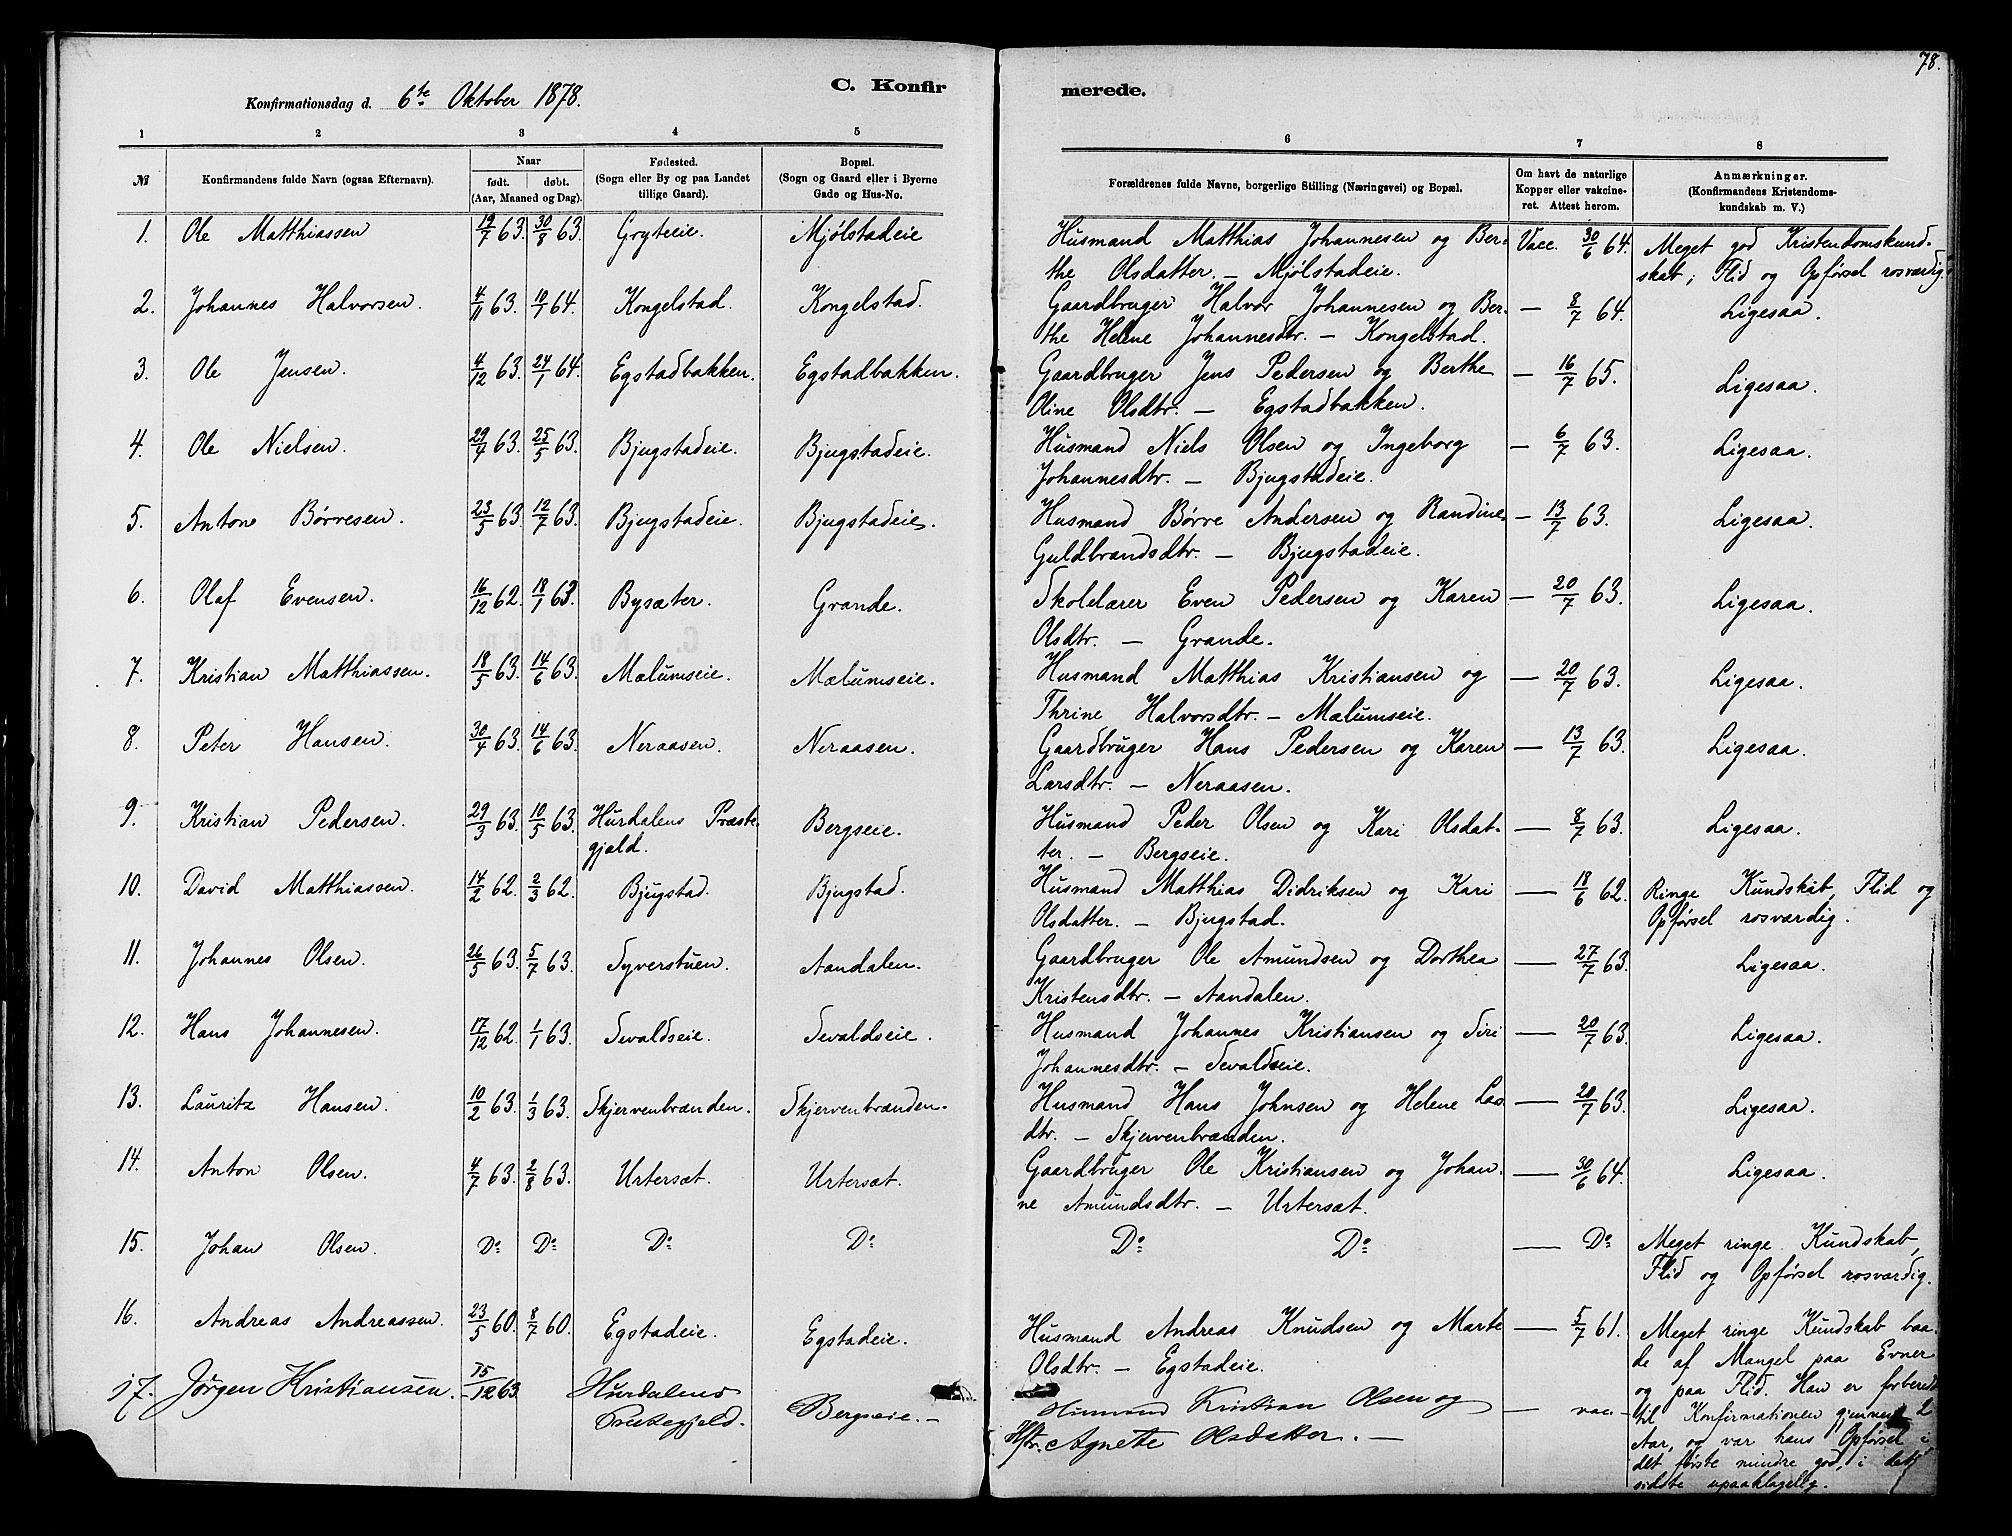 78.
Konfirmationsdag d. 6te Oktober 1878.
C. Konfirmerede.
1 2 3 4 5 6 7 8
№ Konfirmandens fulde Navn (ogsaa Efternavn). Naar født. døbt. (Aar, Maaned og Dag). Fødested. (Sogn eller By og paa Landet tillige Gaard). Bopæl. (Sogn og Gaard eller i Byerne Gade og Hus-No. Forældrenes fulde Navne, borgerlige Stilling (Næringsvei) og Bopæl. Om havt de naturlige Kopper eller vakcineret. Attest herom. Anmærkninger. (Konfirmandens Kristendomskundskab m. V.)
1. Ole Matthiassen 19/7 63. 30/8 63. Gryteeie. Mjølstadeie Husmand Matthias Johannesen og Ber- Vacc. 30/6 64. Meget god Kristendomskund-
the Olsdatter. – Mjølstadeie. skab; Flid og Opførsel rosværdig.
2. Johannes Halvorsen. 4/11 63. 10/1 64. Kongelstad. Kongelstad. Gaardbruger Halvor Johannesen og Ber- — 8/7 64. Ligesaa.
the Helene Johannesdtr. – Kongelstad.
3. Ole Jensen. 4/12 63. 24/1 64. Egstadbakken. Egstadbakken. Gaardbruger Jens Pedersen og Berthe — 16/7 65. Ligesaa.
Oline Olsdtr. – Egstadbakken.
4. Ole Nielsen. 29/4 63. 25/5 63. Bjugstadeie. Bjugstadeie. Husmand Niels Olsen og Ingeborg — 6/7 63. Ligesaa.
Johannesdtr. – Bjugstadeie.
5. Anton Børresen. 23/5 63. 12/7 63. Bjugstadeie. Bjugstadeie. Husmand Børre Andersen og Randine — 13/7 63. Ligesaa.
Guldbrandsdtr. – Bjugstadeie.
6. Olaf Evensen. 16/12 62. 18/1 63. Bysæter. Grande. Skolelærer Even Pedersen og Karen — 20/7 63. Ligesaa.
Olsdtr. – Grande.
7. Kristian Matthiassen. 18/5 63. 14/6 63. Mælumseie. Mælumseie. Husmand Matthias Kristiansen og — 20/7 63. Ligesaa.
Thrine Halvorsdtr. – Mælumseie.
8. Peter Hansen. 30/4 63. 14/6 63. Neraasen. Neraasen. Gaardbruger Hans Pedersen og Karen — 13/7 63. Ligesaa.
Larsdtr. – Neraasen.
9. Kristian Pedersen. 29/3 63. 10/5 63. Hurdalens Præste- Bergseie. Husmand Peder Olsen og Kari Olsdat- — 8/7 63. Ligesaa.
gjæld. ter. – Bergseie.
10. David Matthiassen. 14/2 62. 2/3 62. Bjugstad. Bjugstad. Husmand Matthias Didriksen og Kari — 18/6 62. Ringe Kundskab, Flid og
Olsdatter. – Bjugstad. Opførsel rosværdig.
11. Johannes Olsen. 26/5 63. 5/7 63. Syverstuen. Aandalen. Gaardbruger Ole Amundsen og Dorthea — 27/7 63. Ligesaa.
Kristensdtr. – Aandalen.
12. Hans Johannesen. 17/12 62. 1/1 63. Sevaldseie. Sevaldseie. Husmand Johannes Kristiansen og Siri — 20/7 63. Ligesaa.
Johannesdtr. – Sevaldseie.
13. Lauritz Hansen. 10/2 63. 1/3 63. Skjervenbrænden. Skjervenbrænden. Husmand Hans Johnsen og Helene Las- — 20/7 63. Ligesaa.
dtr. – Skjervenbrænden.
14. Anton Olsen. 4/7 63. 2/8 63. Urtersæt. Urtersæt. Gaardbruger Ole Kristiansen og Johan- — 30/6 64. Ligesaa.
ne Amundsdtr. – Urtersæt.
15. Johan Olsen. Do Do Do Do Do Do — Do Meget ringe Kundskab,
Flid og Opførsel rosværdig.
16. Andreas Andreassen. 23/5 60. 8/7 60. Egstadeie. Egstadeie. Husmand Andreas Knudsen og Marte — 5/7 61. Meget ringe Kundskab baa-
Olsdtr. – Egstadeie. de af Mangel paa Evner
og paa Flid. Han er forberedt
17. Jörgen Kristiansen. 15/12 63. Hurdalens Bergseie. – Husmand Kristian Olsen og — vac. – til Konfirmationen gjennem 2
Præstegjeld. Hstr. Agnette Olsdatter. – Aar, og var hans Opførsel i
det første mindre god, i det
sidste upaaklagelig.